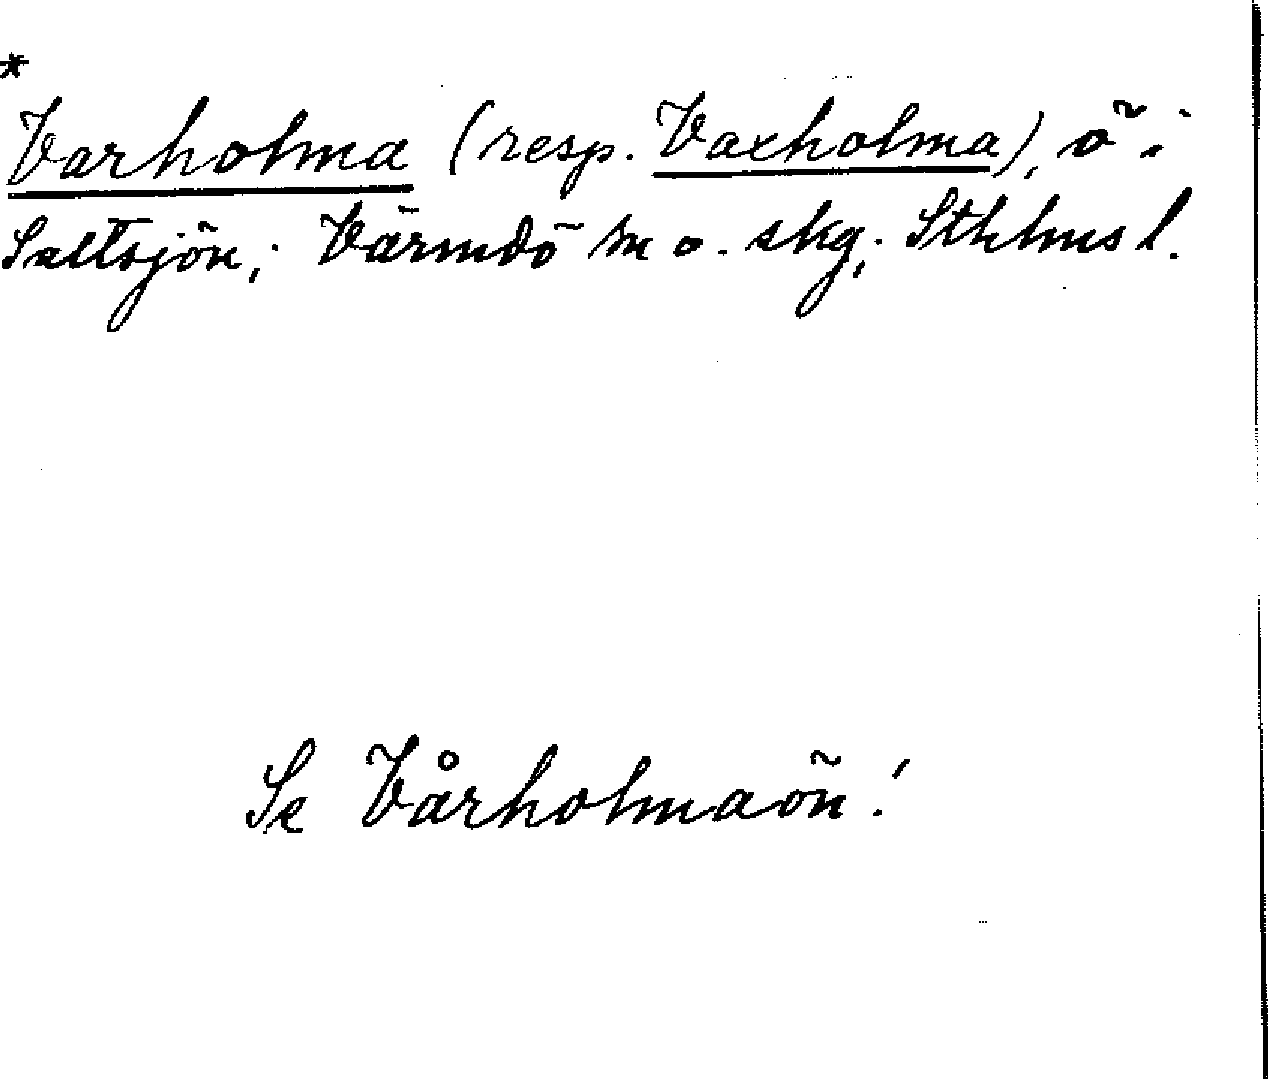 *
Varholma (resp. Vaxholma), ö i
Saltsjön, i Värmdö sn o. skg, Sthlms l.
Se Vårholmaön!